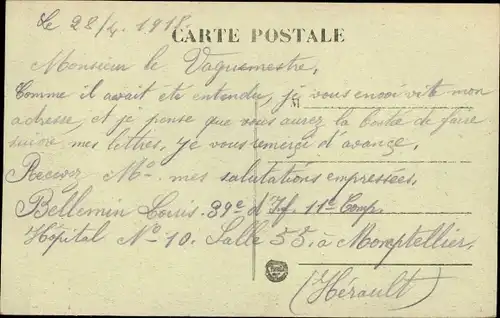 Le 28/4. 1918.
CARTE POSTALE
Monsieur le Vaguemestre,
Comme il avait été entendu, je vous envoi vite mon
adresse, et je pense que vous aurez la bonté de faire
suivre mes lettres. Je vous remerçi d'avance.
Recevez Mo mes salutations empressées.
Bellemin Louis. 39e d'Inf. 11e Comp.
Hôpital No 10. Salle 55. à Momptellier.
(Hérault)